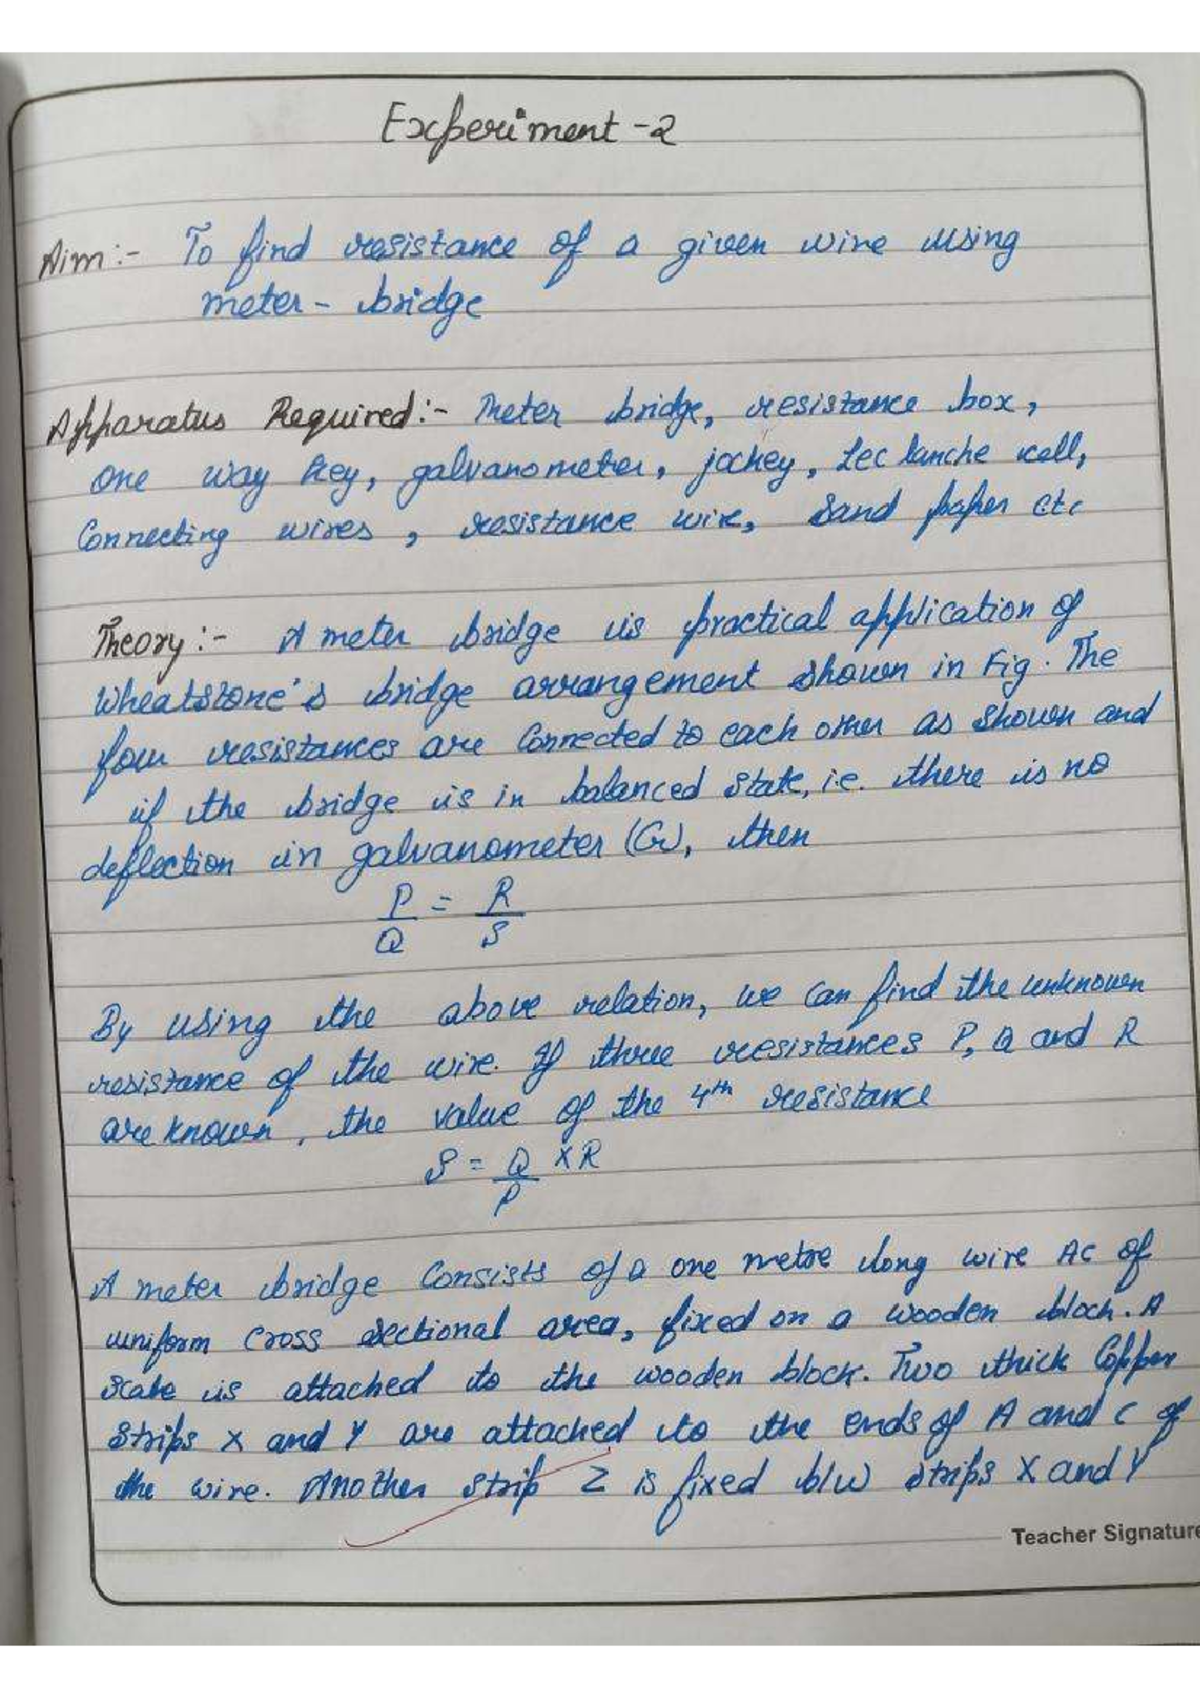 Experiment -2
Aim:- To find resistance of a given wire using
meter - bridge
Apparatus Required:- Meter bridge, resistance box,
one way key, galvanometer, jockey, Lec lanche cell,
Connecting wires, resistance wire, Sand paper etc
Theory:- A meter bridge is practical application of
Wheatstone's bridge arrangement shown in Fig. The
four resistances are Connected to each other as shown and
if the bridge is in balanced state, i.e. there is no
deflection in galvanometer (G), then
P/Q = R/S
By using the above relation, we can find the unknown
resistance of the wire. If three resistances P, Q and R
are known, the value of the 4th resistance
S = Q/P x R
A meter bridge Consists of a one metre long wire AC of
uniform cross sectional area, fixed on a wooden block. A
scale is attached to the wooden block. Two thick Copper
strips X and Y are attached to the ends of A and C of
the wire. Another strip Z is fixed b/w strips X and Y
Teacher Signature